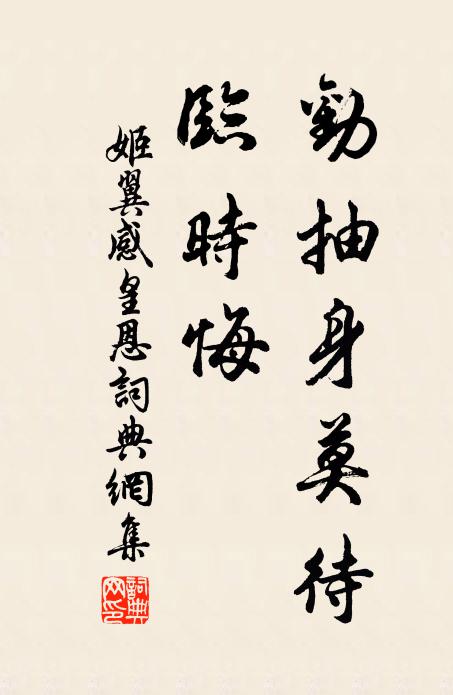 勸抽身莫待
臨時悔
姬翼感皇恩詞典網集
詞典網印